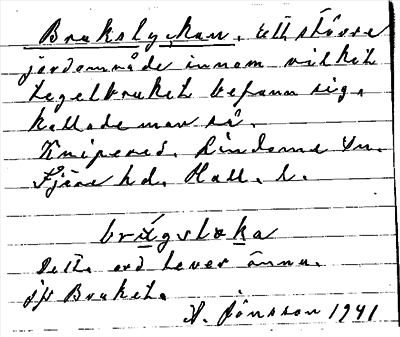 Brukslyckan, ett större
jordområde innom vilket
tegelbruket befann sig,
kallade man så.
Knipered, Lindome sn.
Fjäre hd. Hall. l.
brʉgsløka
Detta ord lever ännu.
på Bruket.
A. Jönsson 1941